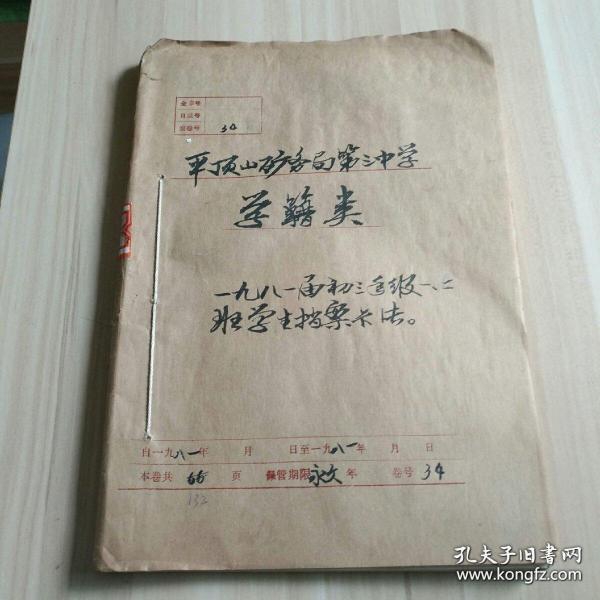 全宗号
目录号
案卷号 34
平顶山矿务局第三中学
学籍类
一九八一届初三年级一、二
班学生档案卡片。
自一九八一年 月 日至一九八一年 月 日
本卷共 66 页 保管期限永久年 卷号 34
132
孔夫子旧书网
www.kongfz.com